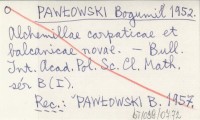 PAWŁOWSKI Bogumił 1952.
Alchemillae carpaticae et
balcanicae novae. – Bull.
Int. Acad. Pol. Sc. Cl. Math.
sér B (I).
Rec.: PAWŁOWSKI B. 1957.